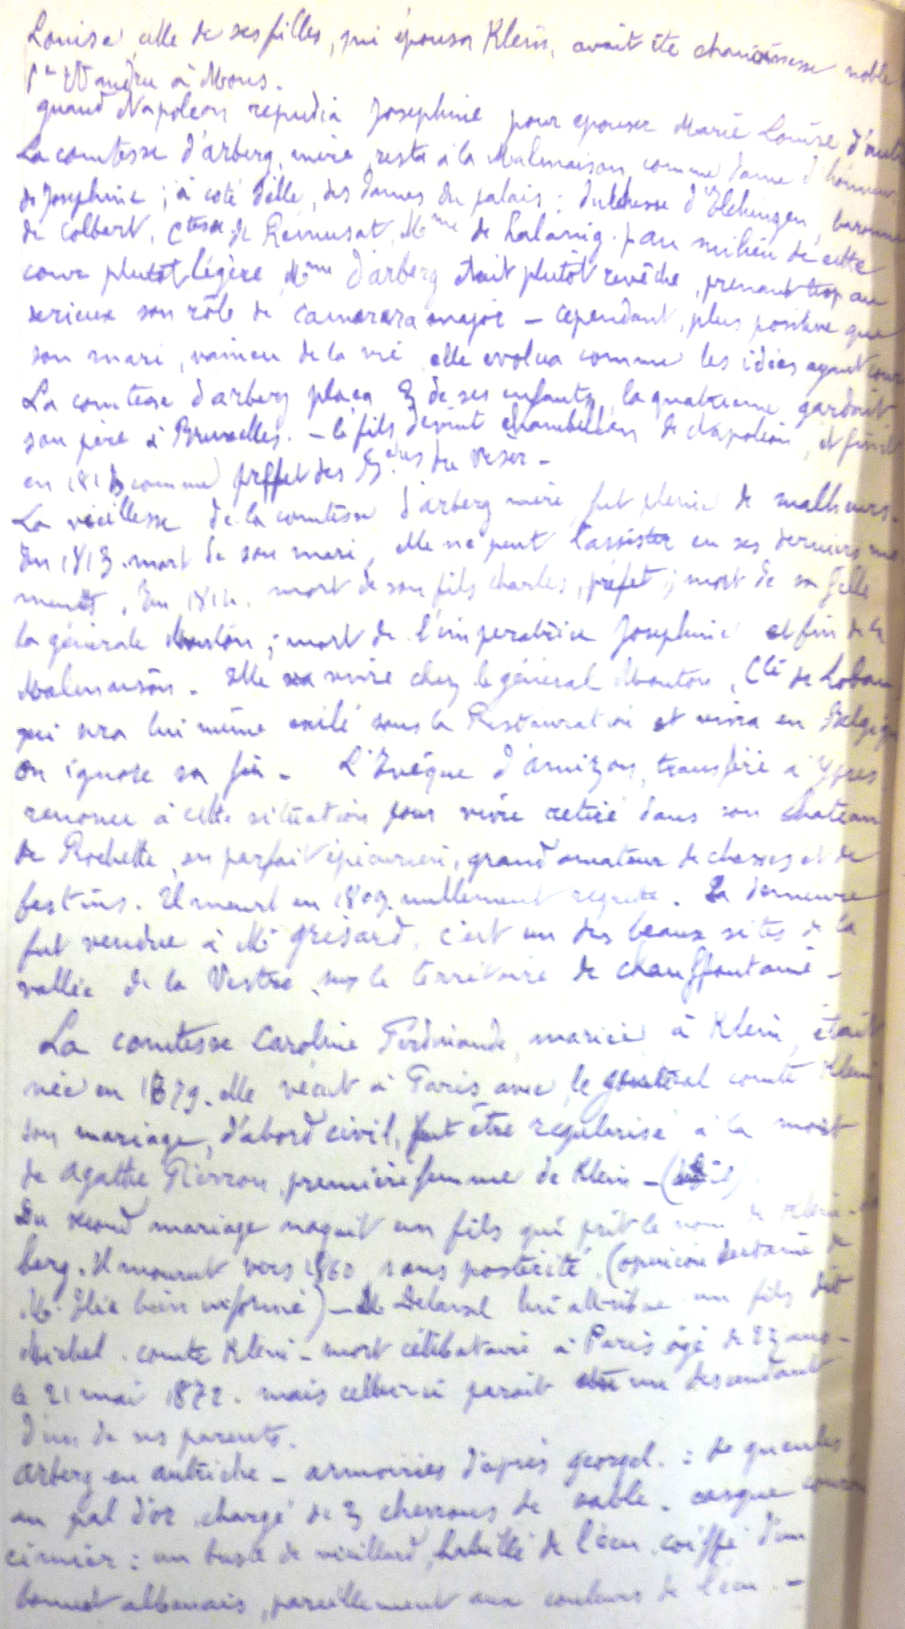 Louise, celle de ses filles, qui épousa Klein, avait été chanoinesse noble
Ste Waudru à Mons.
quand Napoléon répudia Joséphine pour épouser Marie Louise d'Autr
La comtesse d'arberg, mère, resta à la Malmaison, comme dame d'honneur
de Josephine ; à coté d'elle, des dames du palais : duchesse d'Elchingen, baronne
de Colbert, Ctesse de Remusat, Mme de Lalaing. au milieu de cette
cour plutot légère, Mme d'arberg était plutôt revêche, prenant trop au
serieux son rôle de camarera major — cependant, plus positive que
son mari, vaincu de la vie elle evolua comme les idées ayant cours
La comtesse d'arberg plaça 3 de ses enfants, la quatrieme gardait
son père à Bruxelles. — le fils devint chambellan de Napoléon, et finit
en 1813 comme préfet des B. du Weser —
La vieillesse de la comtesse d'arberg mère, fut pleine de malheurs.
En 1813. mort de son mari, elle ne peut l'assister en ses derniers mo
ments. En 1814. mort de son fils Charles, préfet ; mort de sa fille
la générale Mouton ; mort de l'impératrice Josephine et fin de la
Malmaison. Elle va vivre chez le général Mouton, Cte de Lobau
qui sera lui même exilé sous la Restauration et vivra en Belgique
On ignore sa fin — L'Evêque d'Amizon, transféré à Ypres
renonce à cette situation pour vivre retiré dans son chateau
de Rochette, en parfait épicurien, grand amateur de chasses et de
festins. Il meurt en 1809. nullement regretté. Sa demeure
fut vendue à Mr grisard, c'est un des beaux sites de la
vallée de la Vestre, sur le territoire de chauffontaine —
La comtesse Caroline Ferdinande, mariée à Klein, était
née en 1879. elle vécut à Paris avec le général comte Klein
son mariage, d'abord civil, put être regularisé à la mort
de agathe Pierron, première femme de Klein —
Du second mariage naquit un fils qui prit le nom de Klein-d'ar
berg. Il mourut vers 1860 sans postérité. (opinion de
M. bien informé) — M. Delaval lui attribue un fils dit
Michel. comte Klein — mort célibataire à Paris âgé de 27 ans —
le 21 mai 1872. mais celui-ci parait être un descendant
d'un de ses parents.
Arberg en autriche — armoiries d'après georgel. : de gueules
au pal d'or chargé de 3 chevrons de sable. casque couronné
cimier : un buste de vieillard, habillé de l'écu, coiffé d'un
bonnet albanais, pareillement aux couleurs de l'écu. —